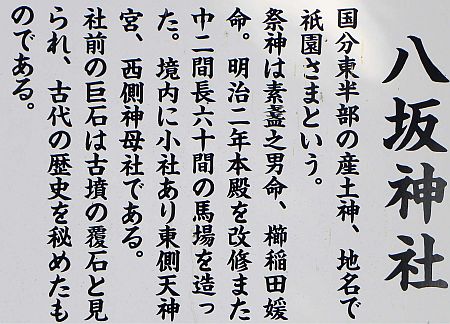 八坂神社
国分東半部の産土神、地名で
祇園さまという。
祭神は素盞之男命、櫛稲田媛
命。明治二年本殿を改修また
巾二間長六十間の馬場を造っ
た。境内に小社あり東側天神
宮、西側神母社である。
社前の巨石は古墳の覆石と見
られ、古代の歴史を秘めたも
のである。